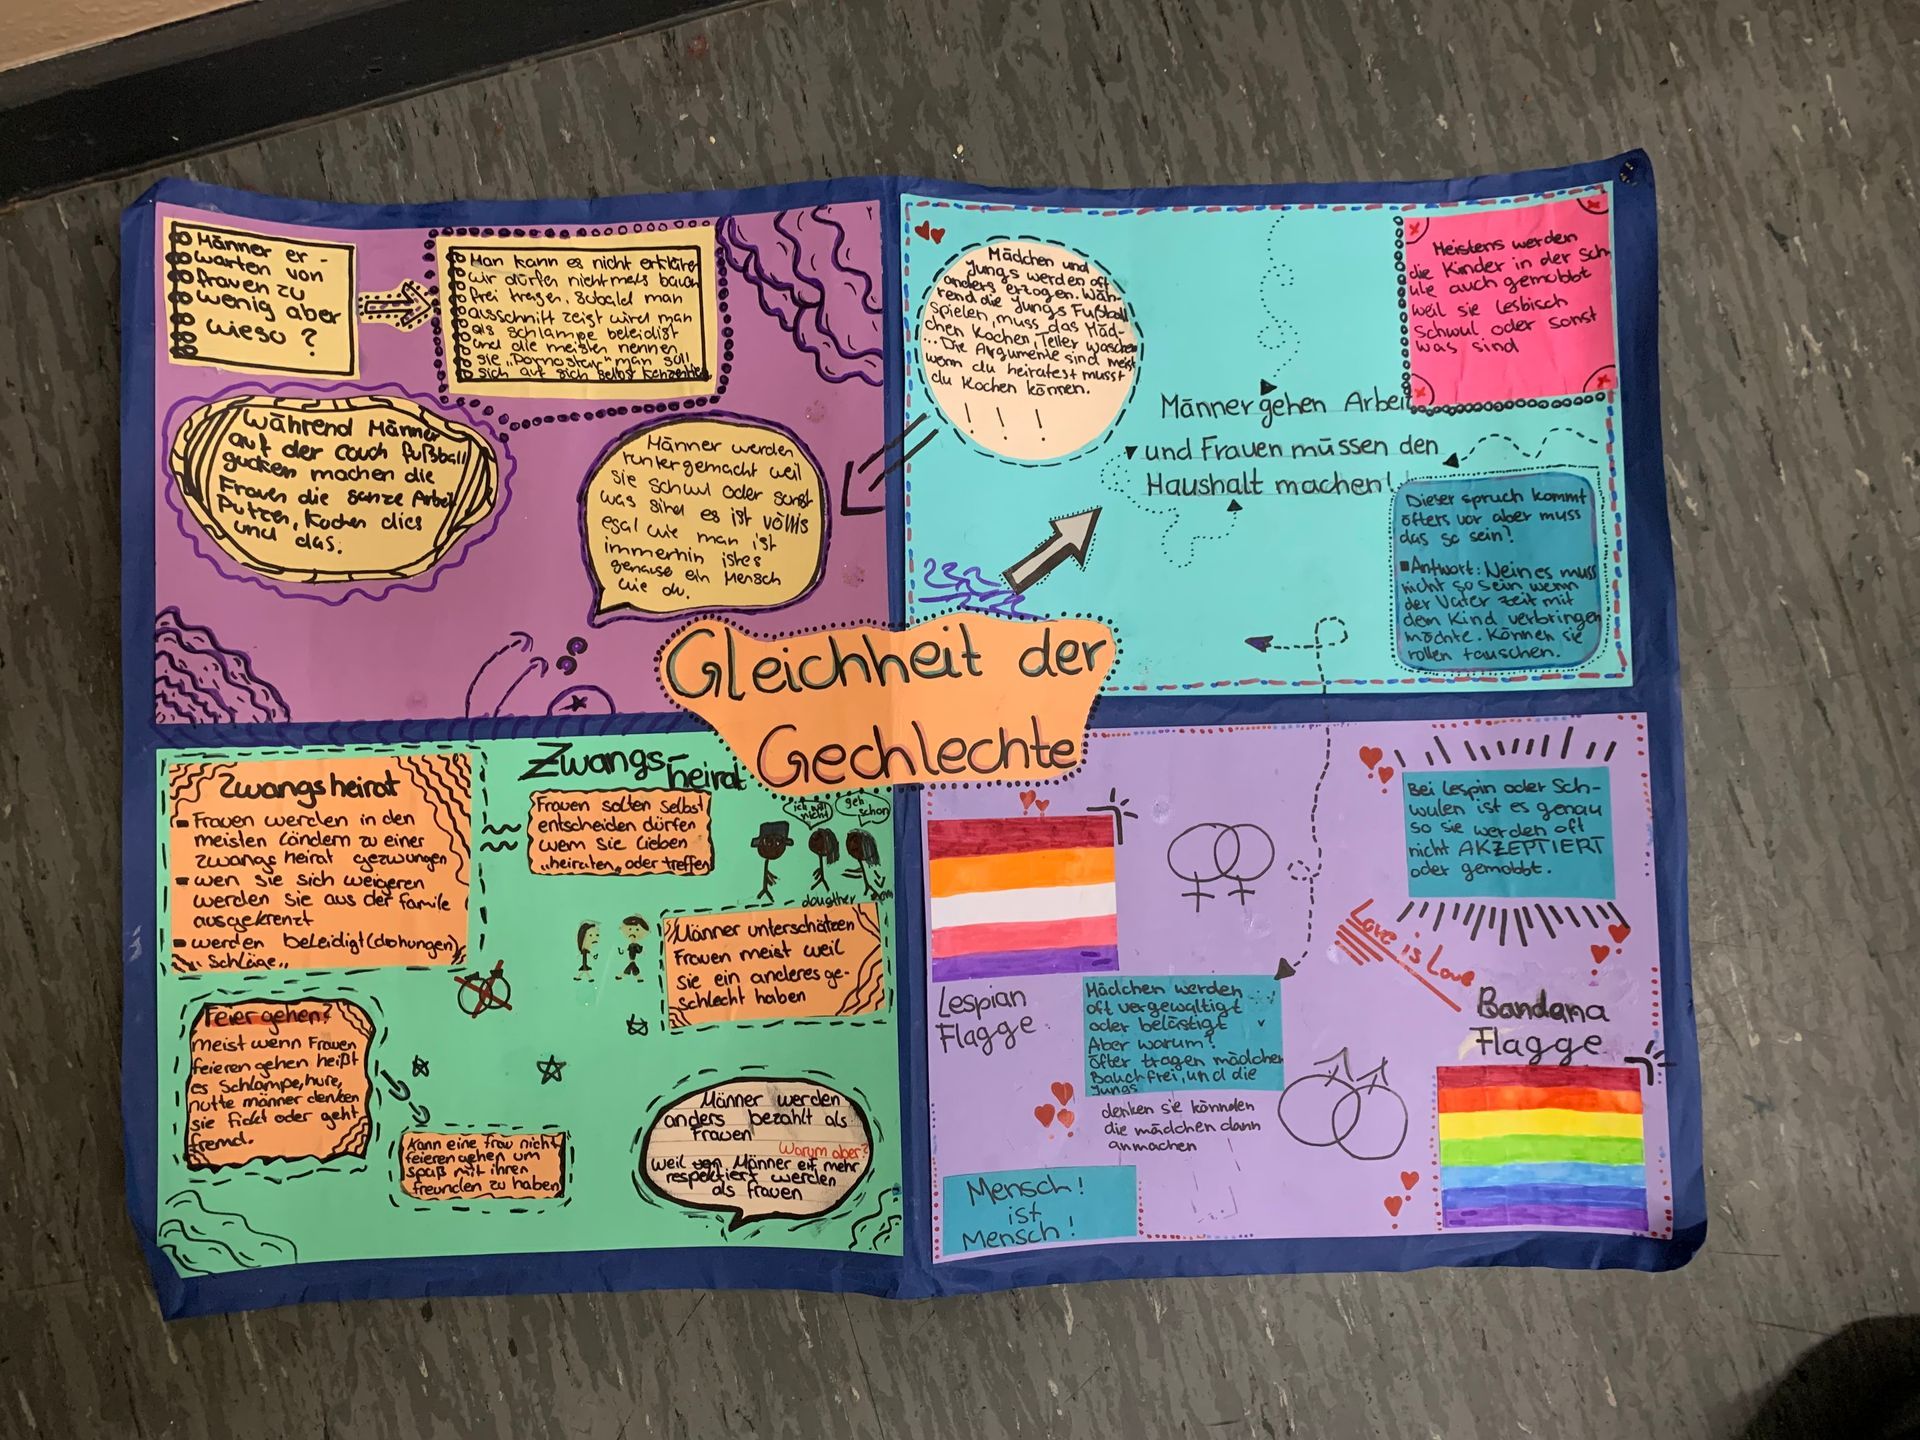 Männer er-
warten von
frauen zu
wenig aber
wieso?
Man kann es nicht erklären
wir dürfen nichtmals bauch
frei tragen, sobald man
ausschnitt zeigt wird man
als schlampe beleidigt
und die meisten nennen
sie "Pornostar" man soll
sich auf sich selbst konzentrie
während Männer
auf der couch fußball
gucken machen die
Frauen die ganze Arbeit
Putzen, kochen dies
und das.
Männer werden
runtergemacht weil
sie schwul oder sonst
was sind es ist völlig
egal wie man ist
immerhin ist es
genauso ein Mensch
wie du.
Mädchen und
Jungs werden oft
anders erzogen. Wäh-
rend die Jungs Fußball
spielen, muss das Mäd-
chen kochen, Teller waschen
... Die Argumente sind meist
wenn du heiratest musst
du kochen können.
! ! !
Männer gehen Arbeit
und Frauen müssen den
Haushalt machen!
Meistens werden
die Kinder in der Sch
ule auch gemobbt
weil sie lesbisch
schwul oder sonst
was sind
Dieser spruch kommt
öfters vor aber muss
das so sein?
Antwort: Nein es muss
nicht so sein wenn
der Vater zeit mit
dem Kind verbringen
möchte. Können sie
rollen tauschen.
Gleichheit der
Gechlechte
Zwangsheirat
Frauen werden in den
meisten Ländern zu einer
zwangs heirat gezwungen
wen sie sich weigeren
werden sie aus der famile
ausgekrenzt
werden beleidigt (drohungen)
"Schläge"
Zwangs-
heirat
Frauen solten selbst
entscheiden dürfen
wem sie lieben
"heiraten, oder treffen
ich will
nicht
geh
schon
daugther
mom
Männer unterschätzen
Frauen meist weil
sie ein anderes ge-
schlecht haben
Feier gehen?
meist wenn Frauen
feieren gehen heißt
es Schlampe, hure,
nutte männer denken
sie fickt oder geht
fremd.
kann eine frau nicht
feieren gehen um
spaß mit ihren
freunden zu haben
Männer werden
anders bezahlt als
Frauen
Warum aber?
weil Männer mehr
respektiert werden
als frauen
Lespian
Flagge
Bei Lespin oder Sch-
wulen ist es genau
so sie werden oft
nicht AKZEPTIERT
oder gemobbt.
Love is Love
Mädchen werden
oft vergewaltigt
oder belästigt
Aber warum?
öfter tragen mädchen
Bauchfrei, und die
Jungs
denken sie könnden
die mädchen dann
anmachen
Bandana
Flagge
Mensch!
ist
Mensch!